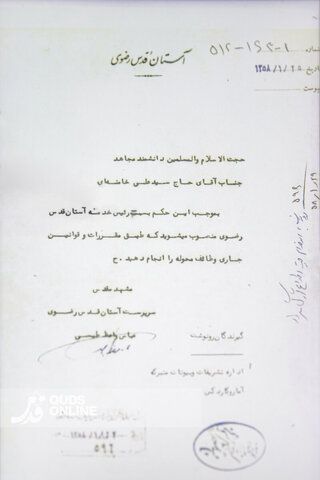 آستان قدس رضوی
شماره ۱-۱۶۲-۵۱۲
تاریخ ۱۳۵۸/۱/۲۵
پیوست
حجت الاسلام والمسلمین دانشمند مجاهد
جناب آقای حاج سیدعلی خامنه‌ای
بموجب این حکم بسمت رئیس خدمه آستان قدس
رضوی منصوب میشوید که طبق مقررات و قوانین
جاری وظائف محوله را انجام دهید. ح
مشهد مقدس
سرپرست آستان قدس رضوی
عباس واعظ طبسی
گیرندگان رونوشت
اداره تشریفات وبیوتات متبرکه
آمار و کارگزینی
۵۹۶
۵۸/۱/۲۹
QUDS
ONLINE